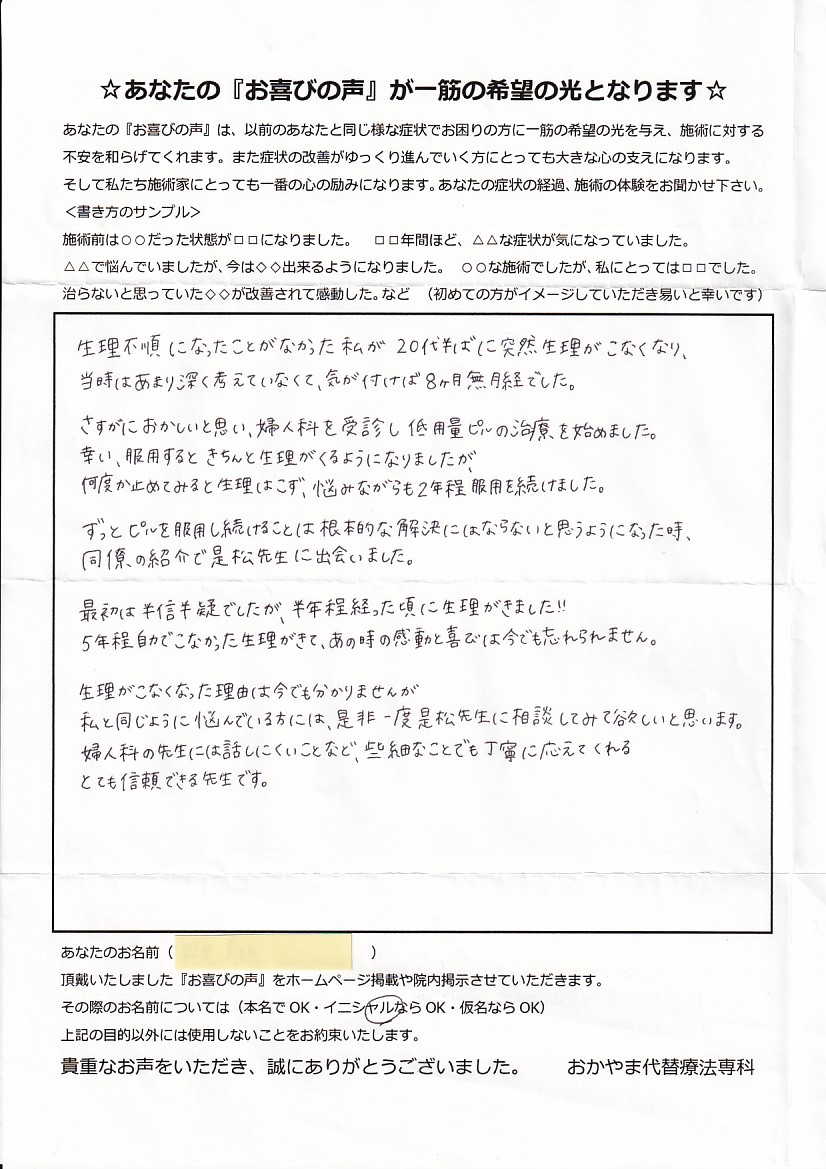 ☆あなたの『お喜びの声』が一筋の希望の光となります☆
あなたの『お喜びの声』は、以前のあなたと同じ様な症状でお困りの方に一筋の希望の光を与え、施術に対する
不安を和らげてくれます。また症状の改善がゆっくり進んでいく方にとっても大きな心の支えになります。
そして私たち施術家にとっても一番の心の励みになります。あなたの症状の経過、施術の体験をお聞かせ下さい。
＜書き方のサンプル＞
施術前は○○だった状態が□□になりました。　□□年間ほど、△△な症状が気になっていました。
△△で悩んでいましたが、今は◇◇出来るようになりました。　○○な施術でしたが、私にとっては□□でした。
治らないと思っていた◇◇が改善されて感動した。など　（初めての方がイメージしていただき易いと幸いです）
生理不順になったことがなかった私が 20代半ばに突然生理がこなくなり、
当時はあまり深く考えていなくて、気が付けば8ヶ月無月経でした。
さすがにおかしいと思い、婦人科を受診し 低用量ピルの治療を始めました。
幸い、服用すると きちんと生理がくるようになりましたが、
何度か止めてみると生理はこず、悩みながらも2年程服用を続けました。
ずっとピルを服用し続けることは根本的な解決にはならないと思うようになった時、
同僚の紹介で是松先生に出会いました。
最初は半信半疑でしたが、半年程経った頃に生理がきました!!
5年程自力でこなかった生理がきて、あの時の感動と喜びは今でも忘れられません。
生理がこなくなった理由は今でも分かりませんが
私と同じように悩んでいる方には、是非一度是松先生に相談してみて欲しいと思います。
婦人科の先生には話しにくいことなど、些細なことでも丁寧に応えてくれる
とても信頼できる先生です。
あなたのお名前（　　　　　　　　）
頂戴いたしました『お喜びの声』をホームページ掲載や院内掲示させていただきます。
その際のお名前については（本名で OK・イニシャルなら OK・仮名なら OK）
上記の目的以外には使用しないことをお約束いたします。
貴重なお声をいただき、誠にありがとうございました。　　おかやま代替療法専科